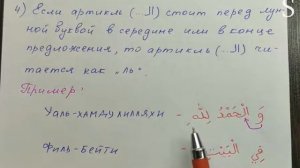 4) Если артикль (...ال) стоит перед лун-
ной буквой в середине или в конце
предложения, то артикль (...ال) чи-
тается как „ль“.
Пример:
Уаль-хамдулилляхи - وَ الْحَمْدُ لِلَّهِ
Филь-бейти - فِي الْبَيْتِ